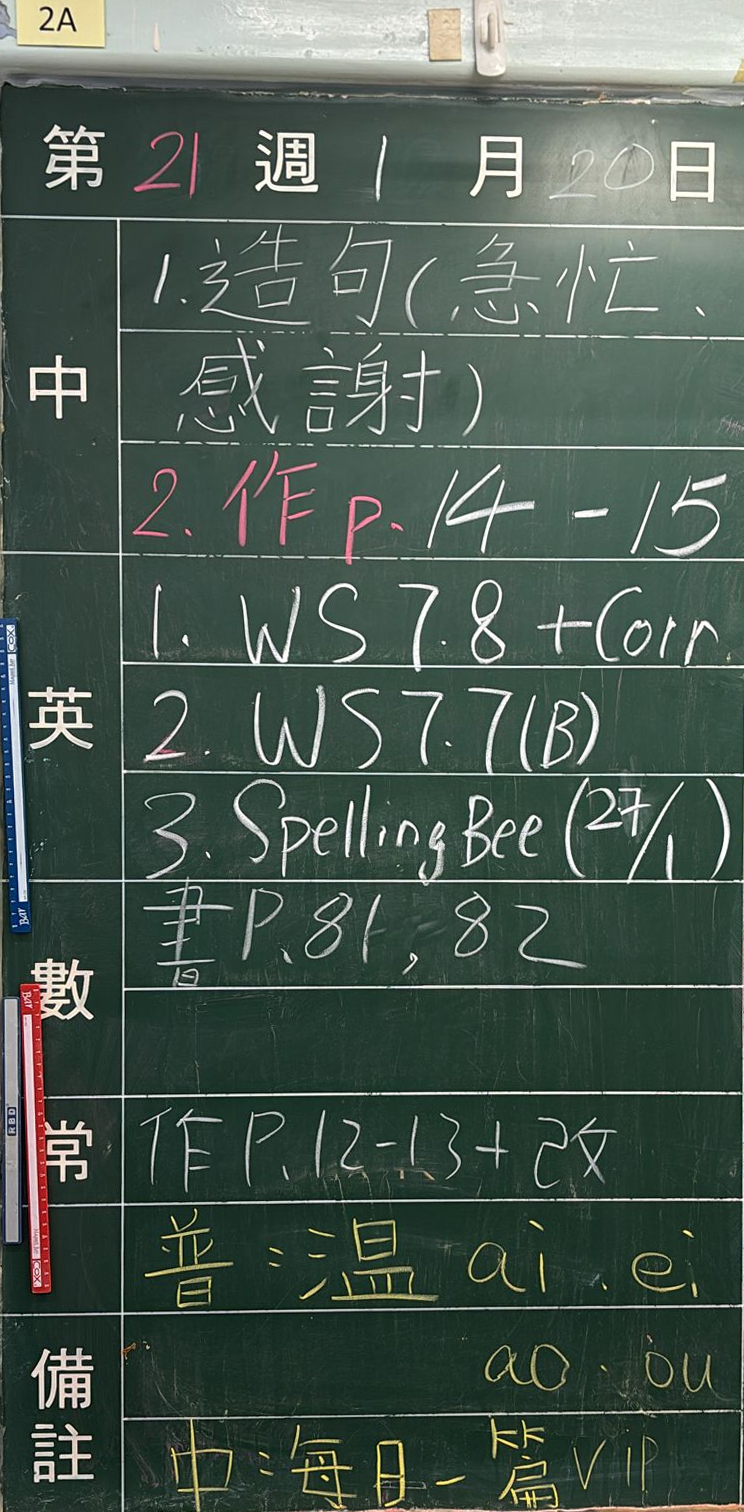 2A
第 21 週 1 月 20 日
中
1.造句(急忙、
感謝)
2.作 p.14-15
英
1. WS 7.8 +Corr
2. WS 7.7(B)
3. Spelling Bee (27/1)
數
書 P.81, 82
常
作 P.12-13+改
普:溫 ai.ei
備註
ao.ou
中:每日一篇 VIP
COX
BAY
BAY
RBD
COX